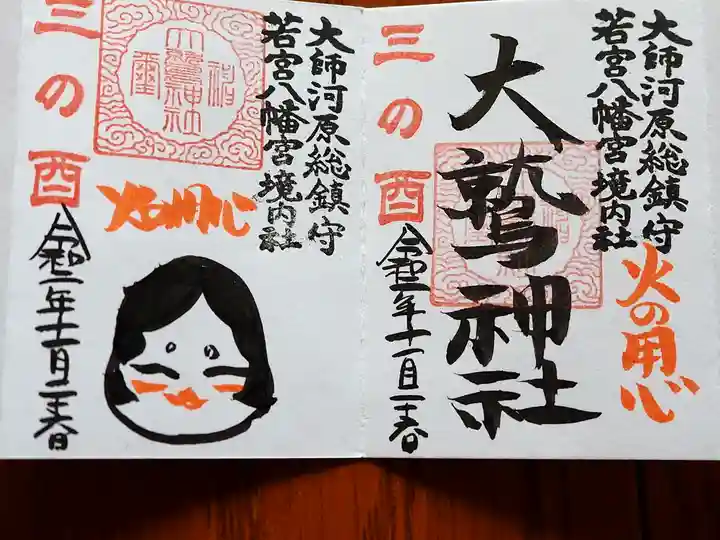 大師河原総鎮守
若宮八幡宮境内社
火の用心
大鷲神社
三の酉
令和二年十一月二十六日
大師河原総鎮守
若宮八幡宮境内社
大鷲神社
火の用心
三の酉